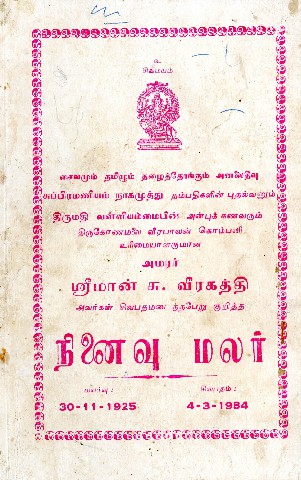 உ
சிவமயம்
சைவமும் தமிழும் தழைத்தோங்கும் அனலைதீவு
சுப்பிரமணியம் நாகமுத்து தம்பதிகளின் புதல்வனும்
திருமதி வள்ளியம்மையின் அன்புக் கணவரும்
திருகோணமலை வீரபாலன் கொம்பனி
உரிமையாளருமான
அமரர்
ஸ்ரீமான் சு. வீரகத்தி
அவர்கள் சிவபதமடைந்தபேறு குறித்த
நினைவு மலர்
மலர்வு :
சிவபதம் :
30-11-1925
4-3-1984